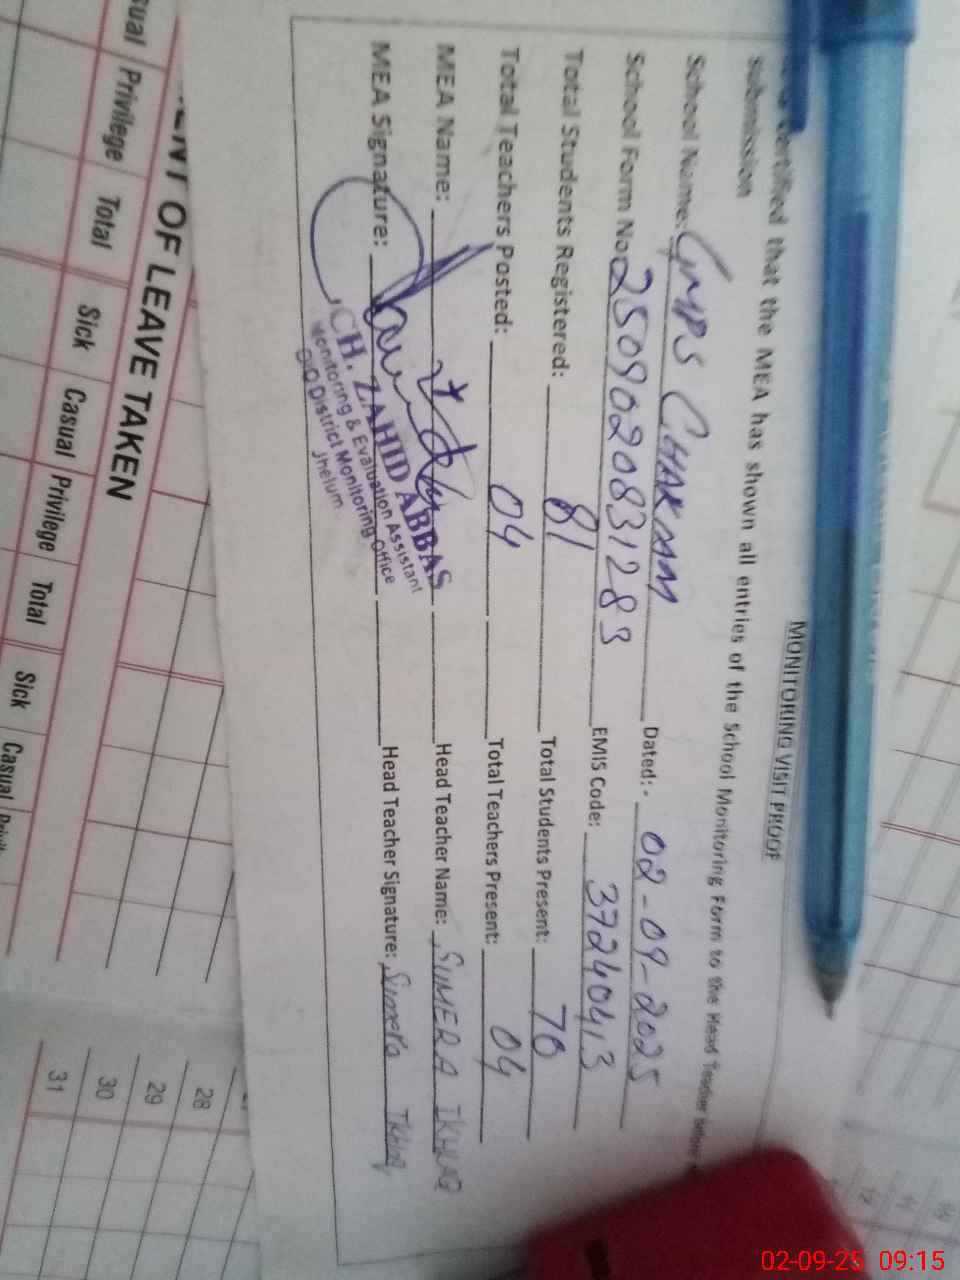 MONITORING VISIT PROOF
certified that the MEA has shown all entries of the School Monitoring Form to the Head Teacher before
submission
School Name: GMPS CHAK Dated:- 02-09-2025
School Form No 2509020831283 EMIS Code: 37240413
Total Students Registered: 81 Total Students Present: 70
Total Teachers Posted: 04 Total Teachers Present: 04
MEA Name: Head Teacher Name: SUMERA IKHLAQ
MEA Signature: Head Teacher Signature: Sumera Ikhlaq
CH. ZAHID ABBAS
Monitoring & Evaluation Assistant
O/O District Monitoring Office
Jhelum
OF LEAVE TAKEN
Privilege Total Sick Casual Privilege Total Sick Casual
28
29
30
31
02-09-25 09:15